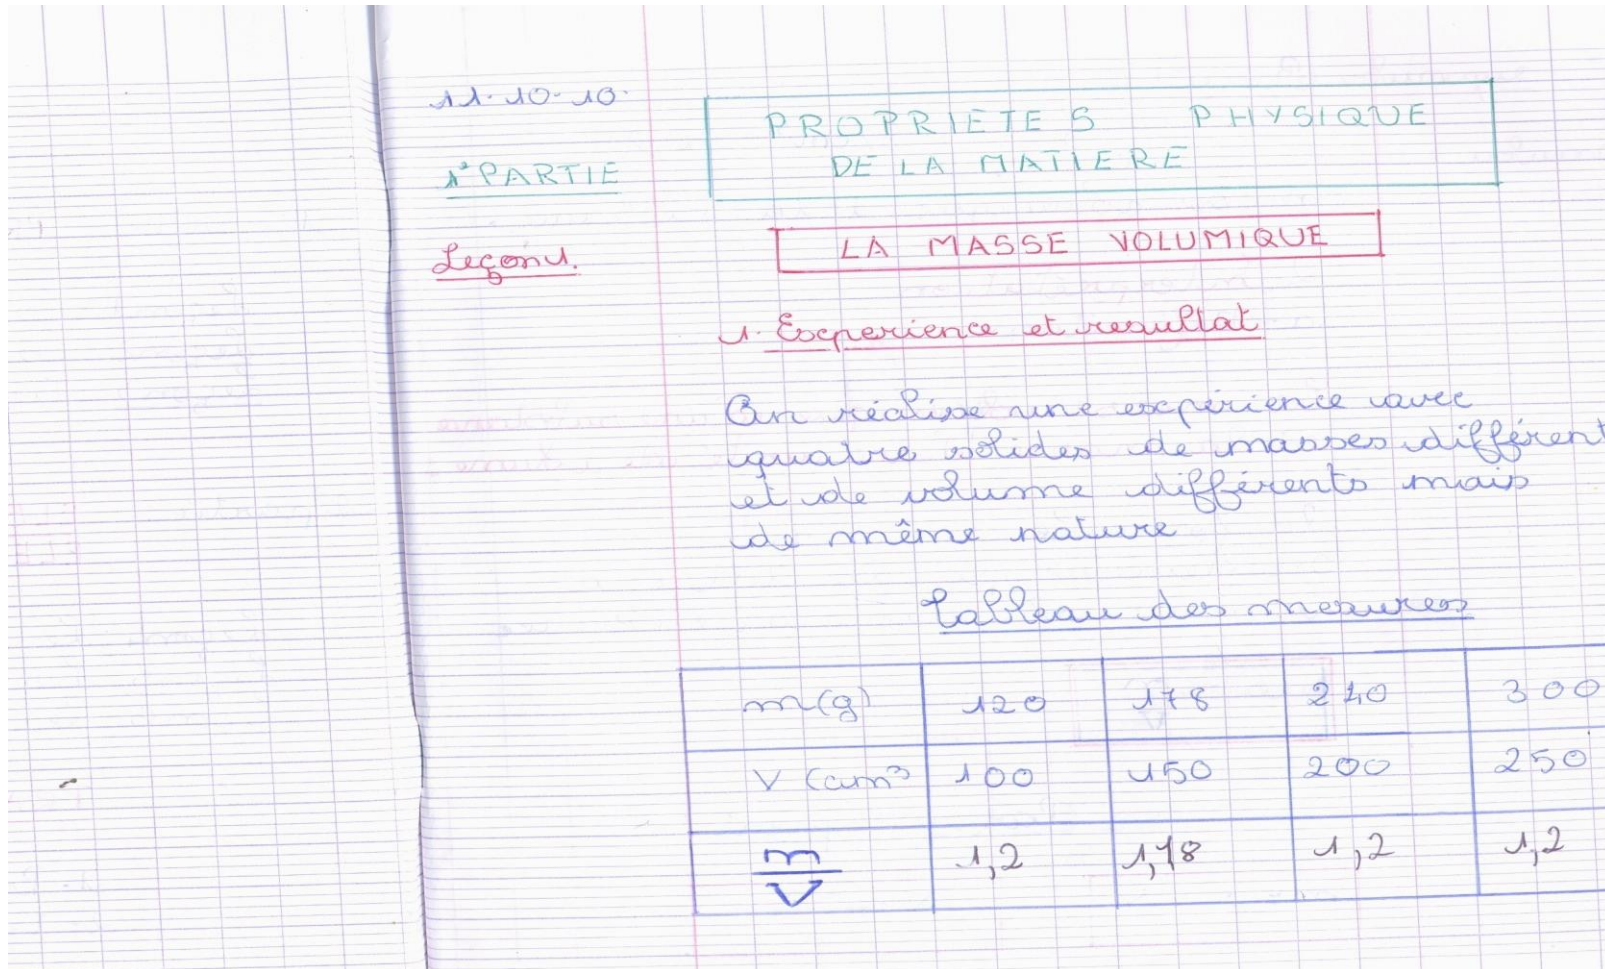 11.10.10.
PROPRIETES PHYSIQUE
DE LA MATIERE
1° PARTIE
Leçon 1.
LA MASSE VOLUMIQUE
1. Experience et resultat
On réalise une expérience avec
quatre solides de masses différent
et de volume différents mais
de même nature
Tableau des mesures
m(g) 120 178 240 300
V (cm³ 100 150 200 250
m/V 1,2 1,18 1,2 1,2